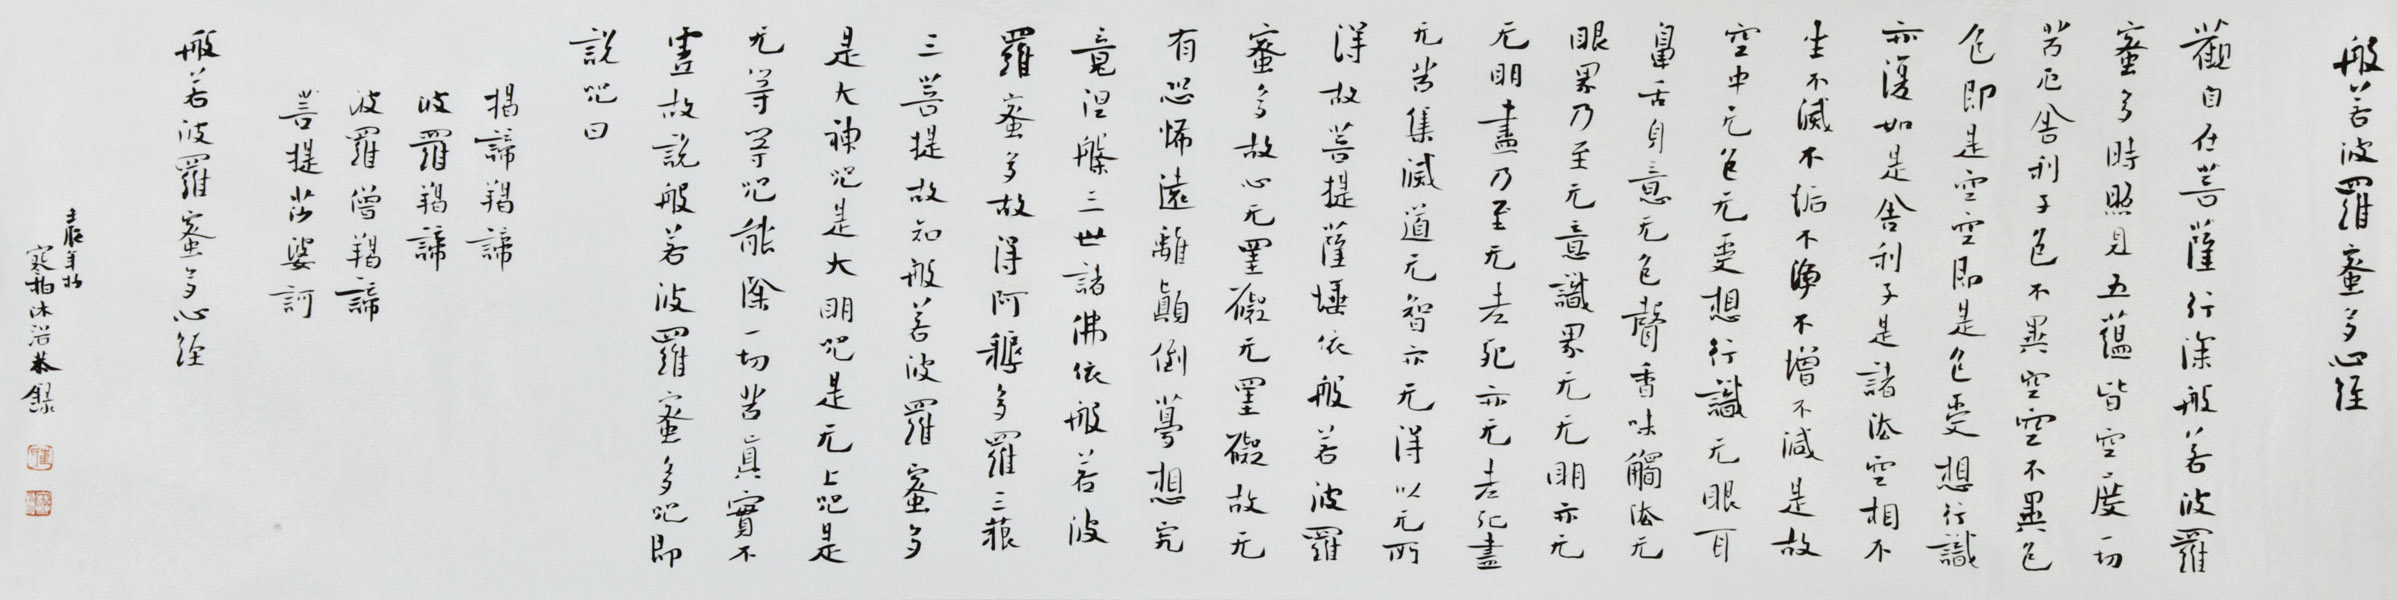 般若波羅蜜多心経
觀自在菩薩行深般若波羅
蜜多時照見五蘊皆空度一切
苦厄舍利子色不異空空不異色
色即是空空即是色受想行識
亦復如是舍利子是諸法空相不
生不滅不垢不淨不增不減是故
空中无色无受想行識无眼耳
鼻舌身意无色聲香味觸法无
眼界乃至无意識界无无明亦无
无明盡乃至无老死亦无老死盡
无苦集滅道无智亦无得以无所
得故菩提薩埵依般若波羅
蜜多故心无罣礙无罣礙故无
有恐怖遠離顛倒夢想究
竟涅槃三世諸佛依般若波
羅蜜多故得阿耨多羅三藐
三菩提故知般若波羅蜜多
是大神咒是大明咒是无上咒是
无等等咒能除一切苦真實不
虛故説般若波羅蜜多咒即
説咒曰
揭諦羯諦
波羅羯諦
波羅僧羯諦
菩提莎婆訶
般若波羅蜜多心経
寒柏沐浴恭錄